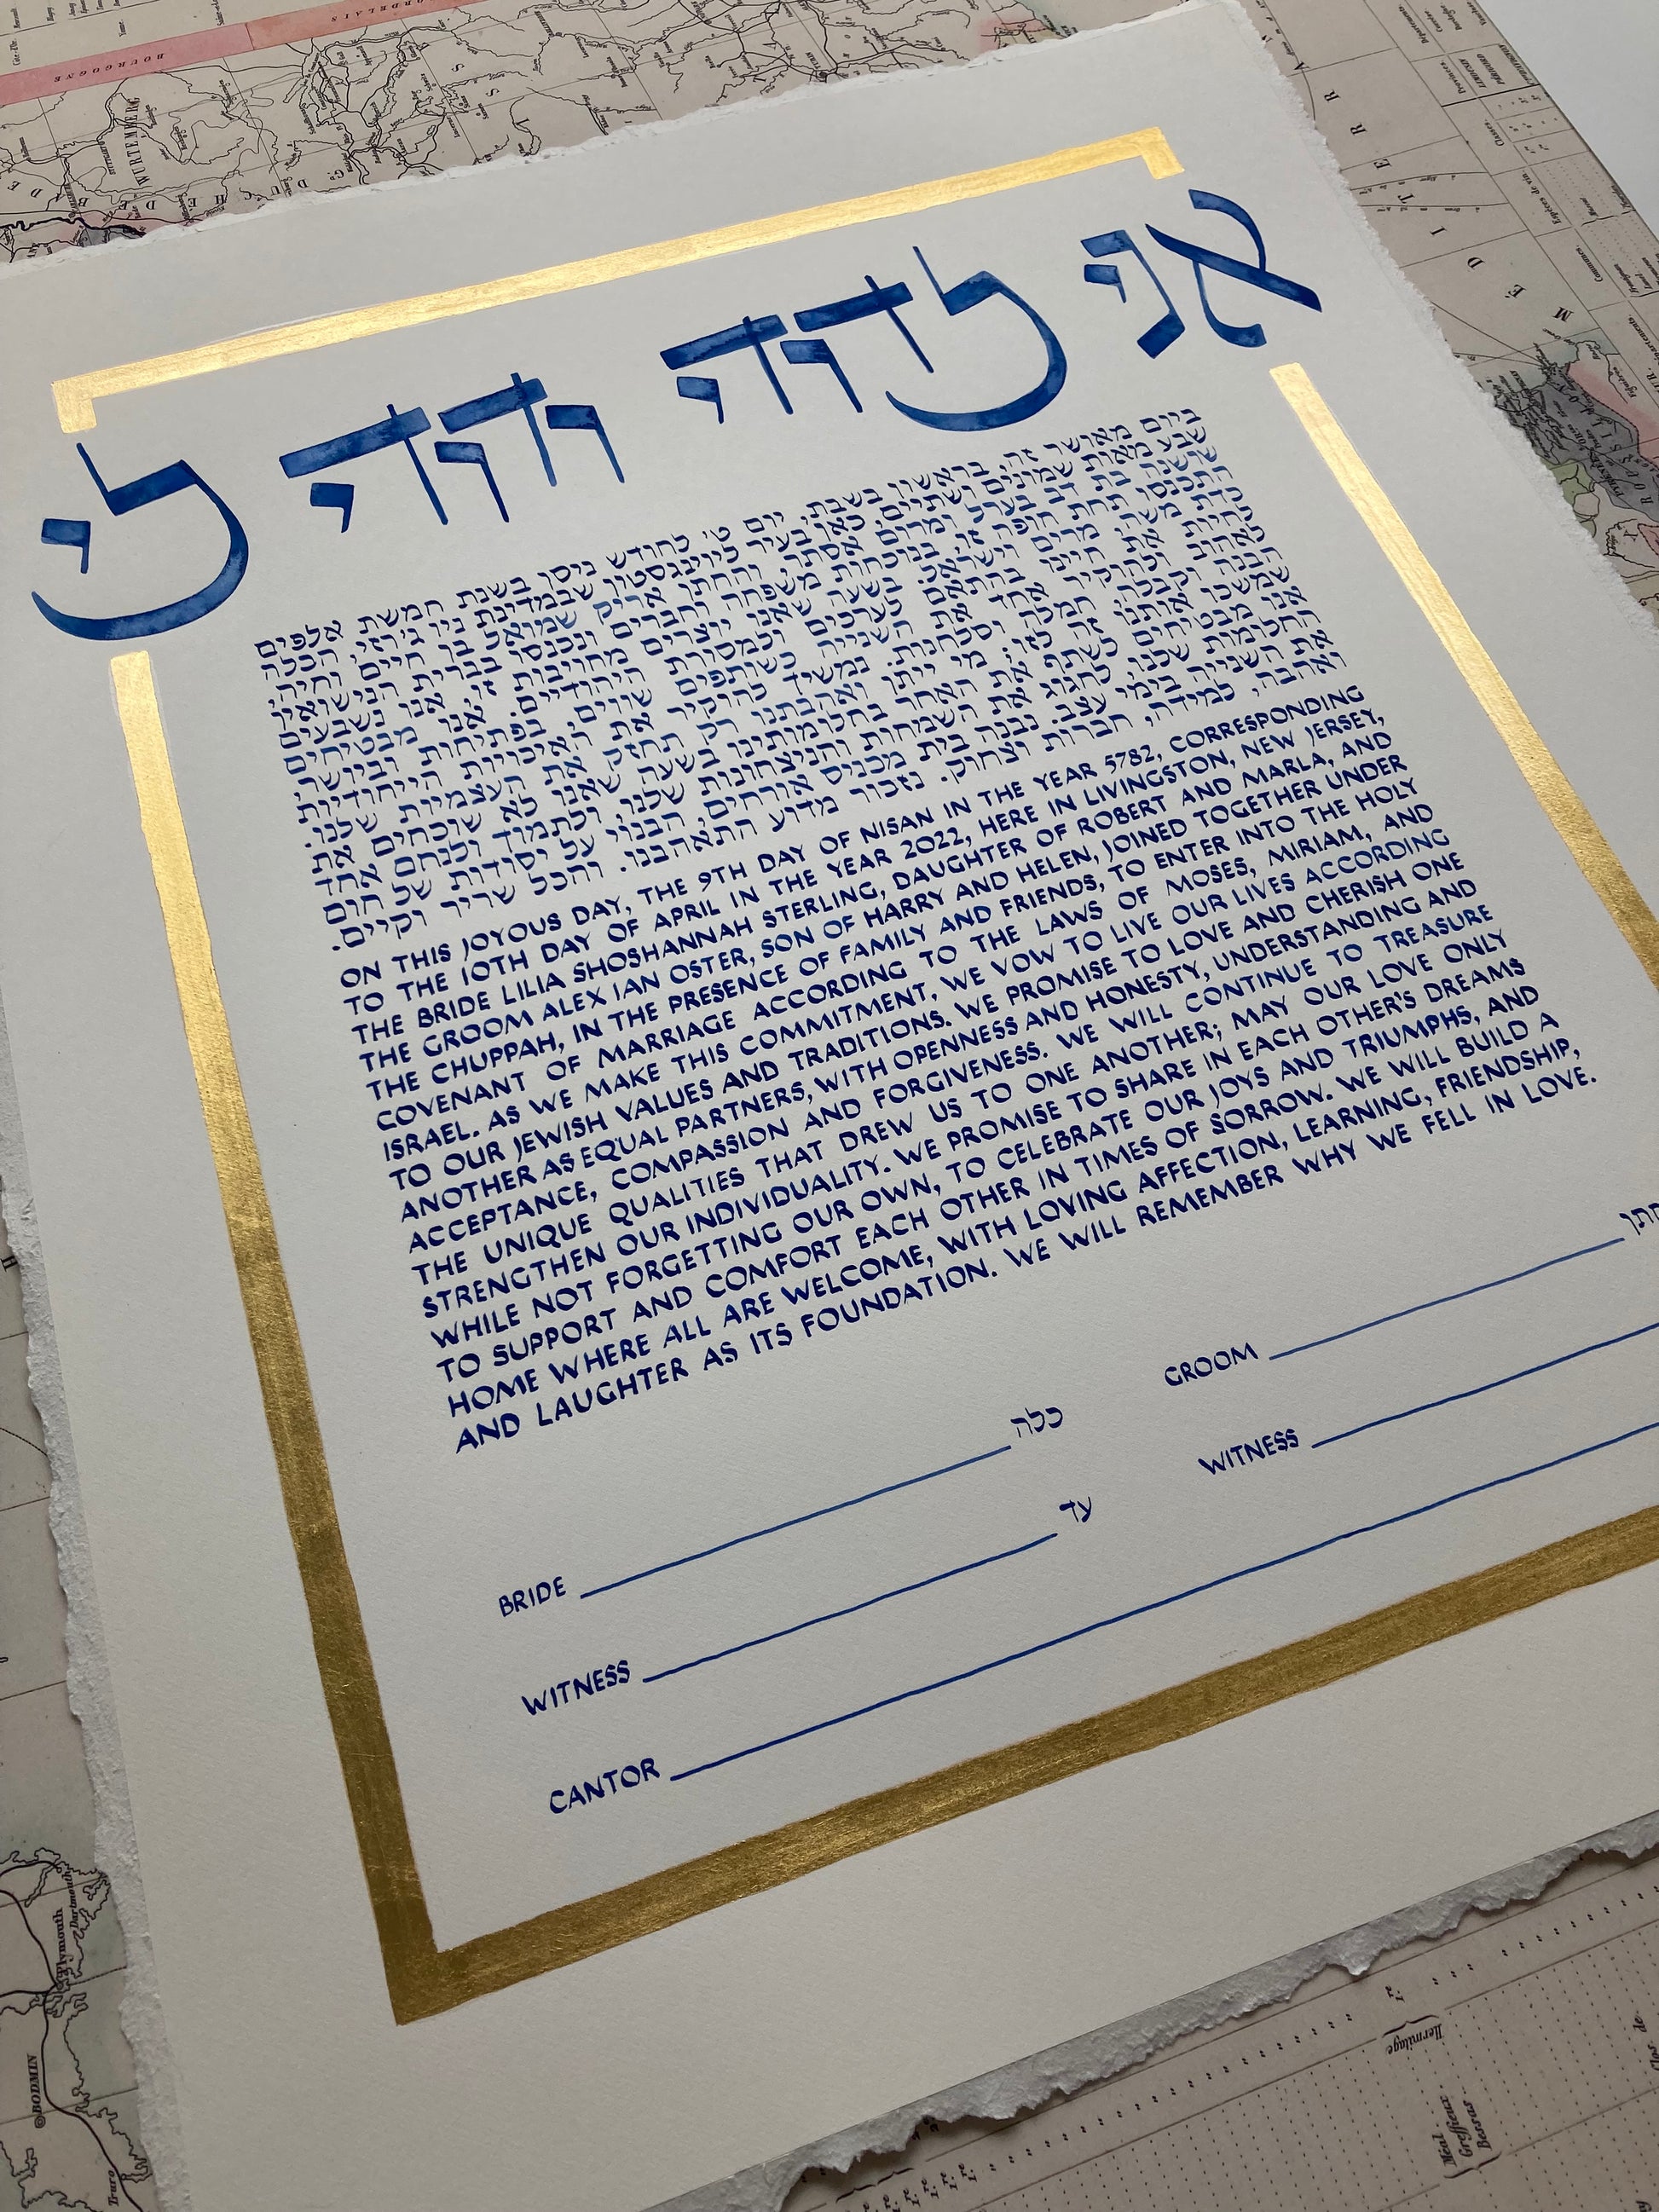 אני לדודי ודודי לי
ביום מאושר זה, בראשון בשבת, יום ט׳ לחודש ניסן בשנת חמשת אלפים
שבע מאות שמונים ושתיים, כאן בעיר ליווינגסטון שבמדינת ניו ג׳רזי, הכלה
שושנה בת דב בערל ומרים אסתר, והחתן אריק שמואל בן חיים וחיה,
התכנסו תחת חופה זו, בנוכחות משפחה וחברים ונכנסו בברית הנישואין
כדת משה, מרים וישראל. בשעה שאנו יוצרים מחויבות זו, אנו נשבעים
לחיות את חיינו בהתאם לערכים ולמסורת היהודיים. אנו מבטיחים
לאהוב ולהוקיר אחד את השנייה כשותפים שווים, בפתיחות וביושר,
הבנה וקבלה, חמלה וסלחנות. נמשיך להוקיר את האיכויות הייחודיות
שמשכו אותנו זה לזו; מי ייתן ואהבתנו רק תחזק את העצמיות שלנו.
אנו מבטיחים לשתף את האחר בחלומותינו בשעה שאנו לא שוכחים את
החלומות שלנו, לחגוג את השמחות והניצחונות שלנו, ולתמוך ולנחם אחד
את השנייה בימי עצב. נבנה בית מכניס אורחים, הבנוי על יסודות של חום
ואהבה, למידה, חברות וצחוק. נזכור מדוע התאהבנו. והכל שריר וקיים.
ON THIS JOYOUS DAY, THE 9TH DAY OF NISAN IN THE YEAR 5782, CORRESPONDING
TO THE 10TH DAY OF APRIL IN THE YEAR 2022, HERE IN LIVINGSTON, NEW JERSEY,
THE BRIDE LILIA SHOSHANNAH STERLING, DAUGHTER OF ROBERT AND MARLA, AND
THE GROOM ALEX IAN OSTER, SON OF HARRY AND HELEN, JOINED TOGETHER UNDER
THE CHUPPAH, IN THE PRESENCE OF FAMILY AND FRIENDS, TO ENTER INTO THE HOLY
COVENANT OF MARRIAGE ACCORDING TO THE LAWS OF MOSES, MIRIAM, AND
ISRAEL. AS WE MAKE THIS COMMITMENT, WE VOW TO LIVE OUR LIVES ACCORDING
TO OUR JEWISH VALUES AND TRADITIONS. WE PROMISE TO LOVE AND CHERISH ONE
ANOTHER AS EQUAL PARTNERS, WITH OPENNESS AND HONESTY, UNDERSTANDING AND
ACCEPTANCE, COMPASSION AND FORGIVENESS. WE WILL CONTINUE TO TREASURE
THE UNIQUE QUALITIES THAT DREW US TO ONE ANOTHER; MAY OUR LOVE ONLY
STRENGTHEN OUR INDIVIDUALITY. WE PROMISE TO SHARE IN EACH OTHER'S DREAMS
WHILE NOT FORGETTING OUR OWN, TO CELEBRATE OUR JOYS AND TRIUMPHS, AND
TO SUPPORT AND COMFORT EACH OTHER IN TIMES OF SORROW. WE WILL BUILD A
HOME WHERE ALL ARE WELCOME, WITH LOVING AFFECTION, LEARNING, FRIENDSHIP,
AND LAUGHTER AS ITS FOUNDATION. WE WILL REMEMBER WHY WE FELL IN LOVE.
BRIDE כלה
GROOM חתן
WITNESS עד
WITNESS
CANTOR
BOURGOGNE
WURTEMBERG
Plymouth
Dartmouth
BODMIN
Truro
Hermitage
Méal
Greffieux
Bessas